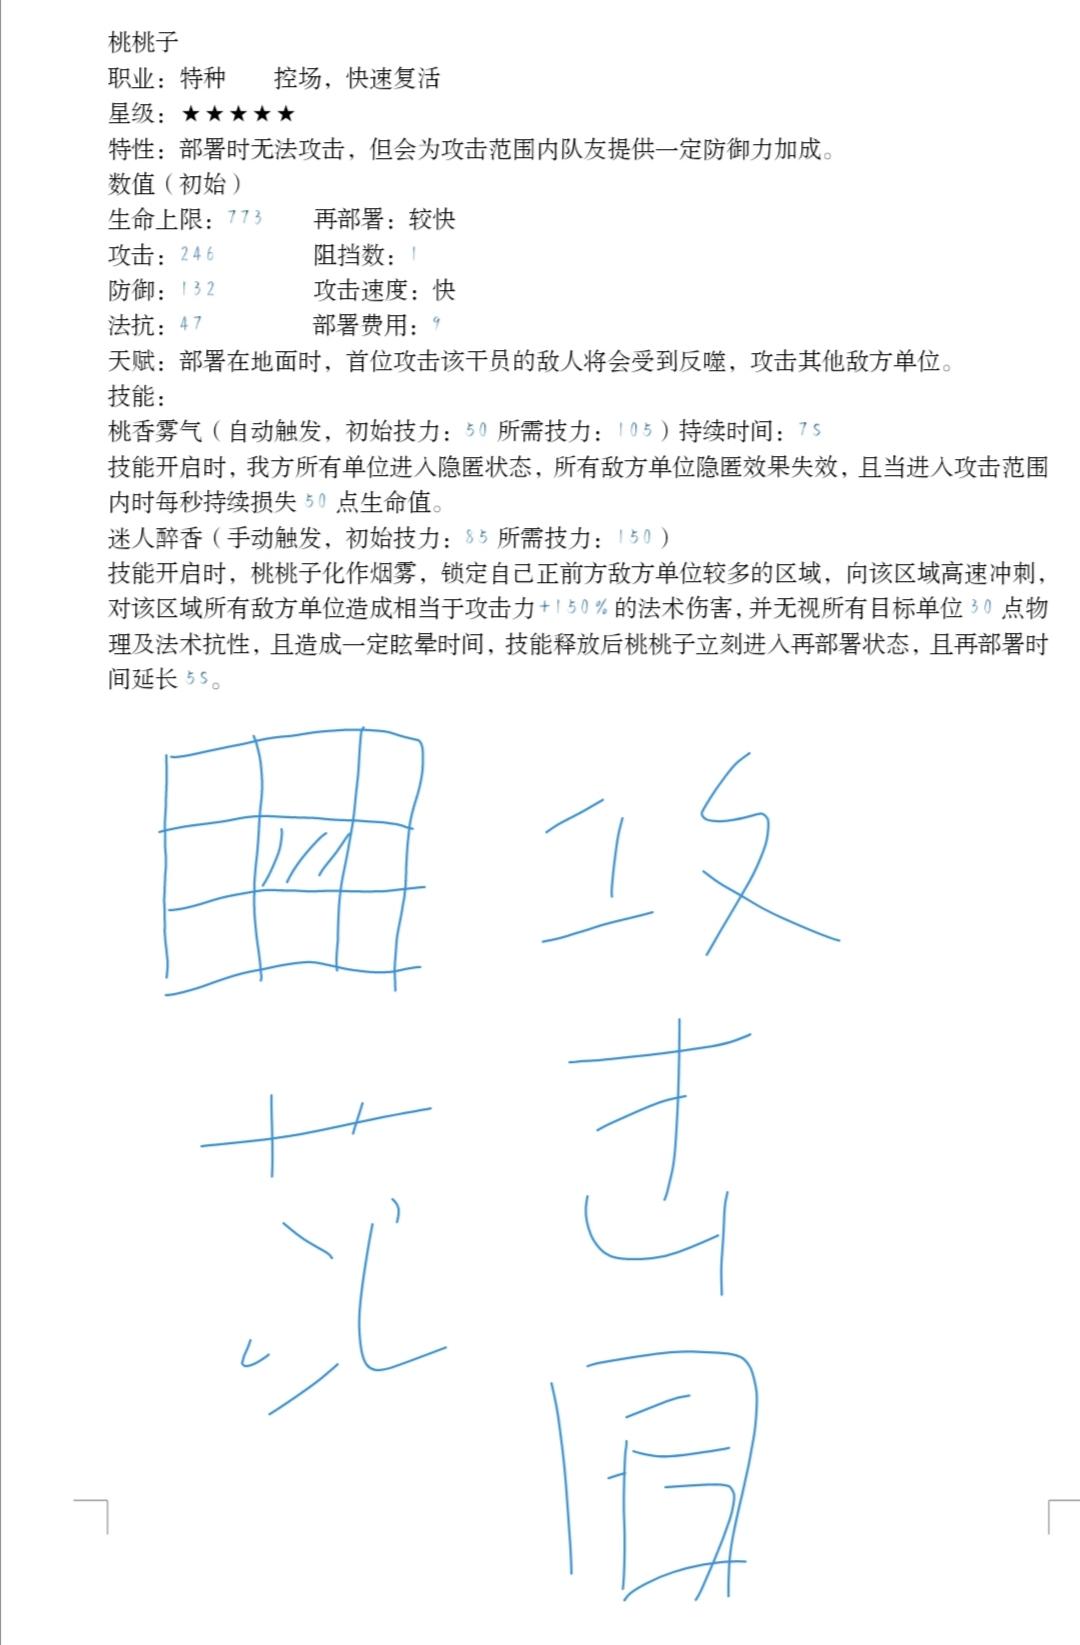 桃桃子
职业：特种　　控场，快速复活
星级：★★★★★
特性：部署时无法攻击，但会为攻击范围内队友提供一定防御力加成。
数值（初始）
生命上限：773　　再部署：较快
攻击：246　　阻挡数：1
防御：132　　攻击速度：快
法抗：47　　部署费用：9
天赋：部署在地面时，首位攻击该干员的敌人将会受到反噬，攻击其他敌方单位。
技能：
桃香雾气（自动触发，初始技力：50 所需技力：105）持续时间：7S
技能开启时，我方所有单位进入隐匿状态，所有敌方单位隐匿效果失效，且当进入攻击范围
内时每秒持续损失 50 点生命值。
迷人醉香（手动触发，初始技力：85 所需技力：150）
技能开启时，桃桃子化作烟雾，锁定自己正前方敌方单位较多的区域，向该区域高速冲刺，
对该区域所有敌方单位造成相当于攻击力+150%的法术伤害，并无视所有目标单位 30 点物
理及法术抗性，且造成一定眩晕时间，技能释放后桃桃子立刻进入再部署状态，且再部署时
间延长 5S。
攻
击
范
围